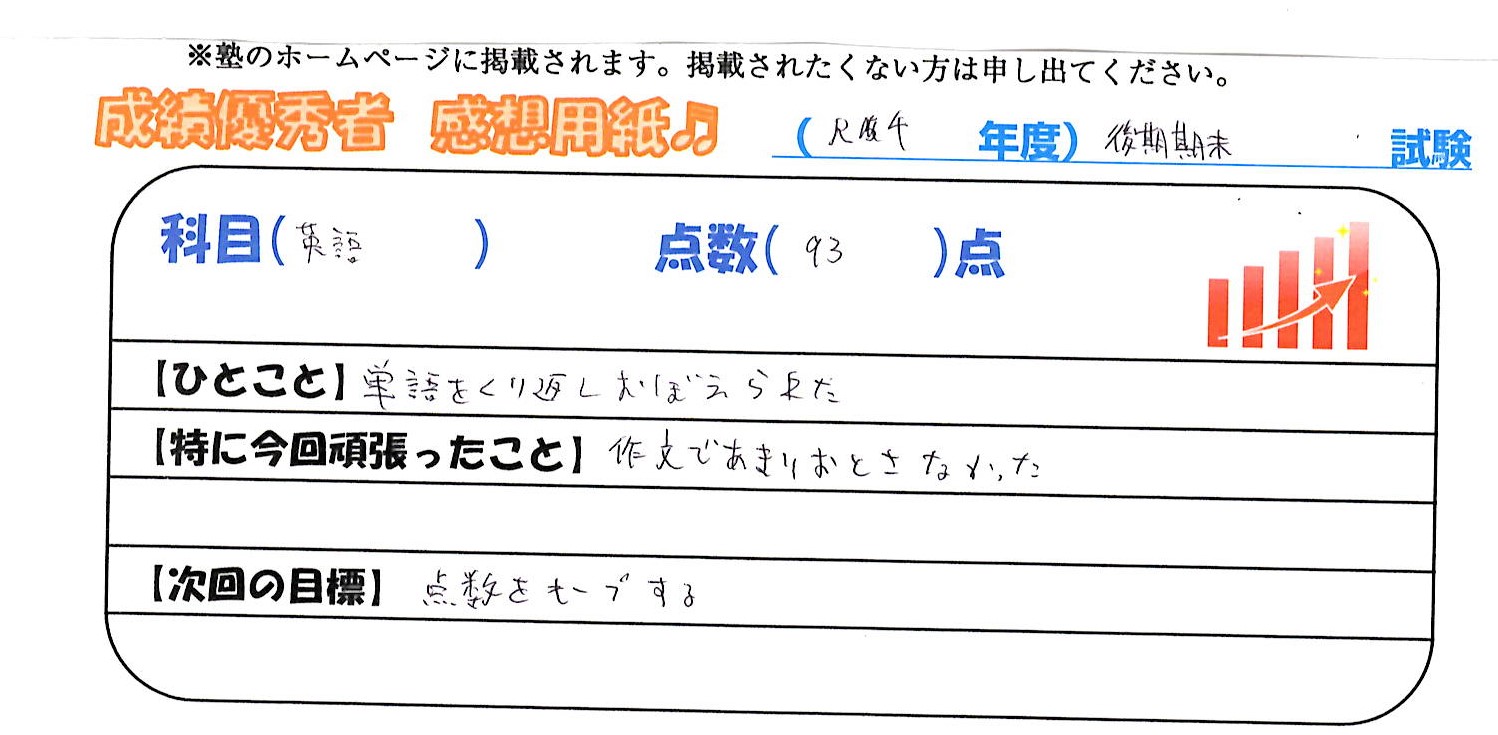 ※塾のホームページに掲載されます。掲載されたくない方は申し出てください。
成績優秀者 感想用紙♫ ( 年度) 後期期末 試験
科目(英語) 点数(93)点
【ひとこと】単語をくり返しおぼえられた
【特に今回頑張ったこと】作文であまりおとさなかった
【次回の目標】点数をキープする